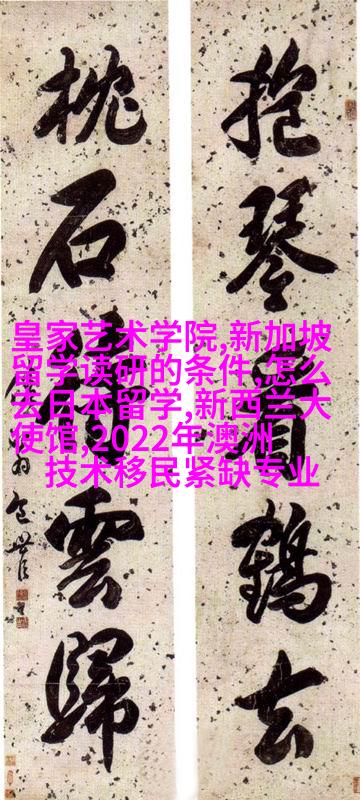 抱琴看鶴去
枕石雲歸
包世臣
皇家艺术学院,新加坡
留学读研的条件,怎么
去日本留学,新西兰大
使馆,2022年澳洲
技术移民紧缺专业